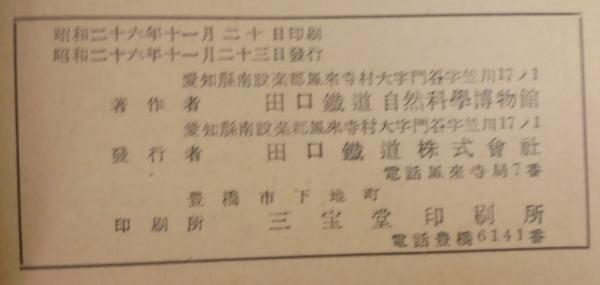 昭和二十六年十一月二十日印刷
昭和二十六年十一月二十三日發行
愛知縣南設楽郡鳳來寺村大字門谷字笠川17ノ1
著作者 田口鐵道自然科學博物館
愛知縣南設楽郡鳳來寺村大字門谷字笠川17ノ1
發行者 田口鐵道株式會社
電話鳳來寺局7番
豊橋市下地町
印刷所 三宝堂印刷所
電話豊橋6141番